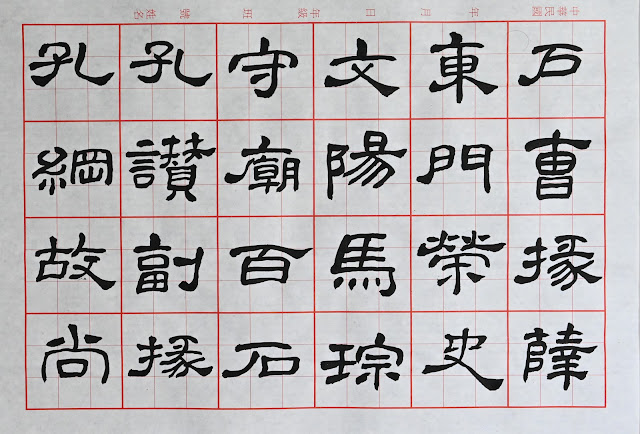 中華民國 年 月 日 年級 班 號 姓名
戶曹掾薛
東門榮史
文陽馬琮
守廟百石
孔讚副掾
孔綱故尚